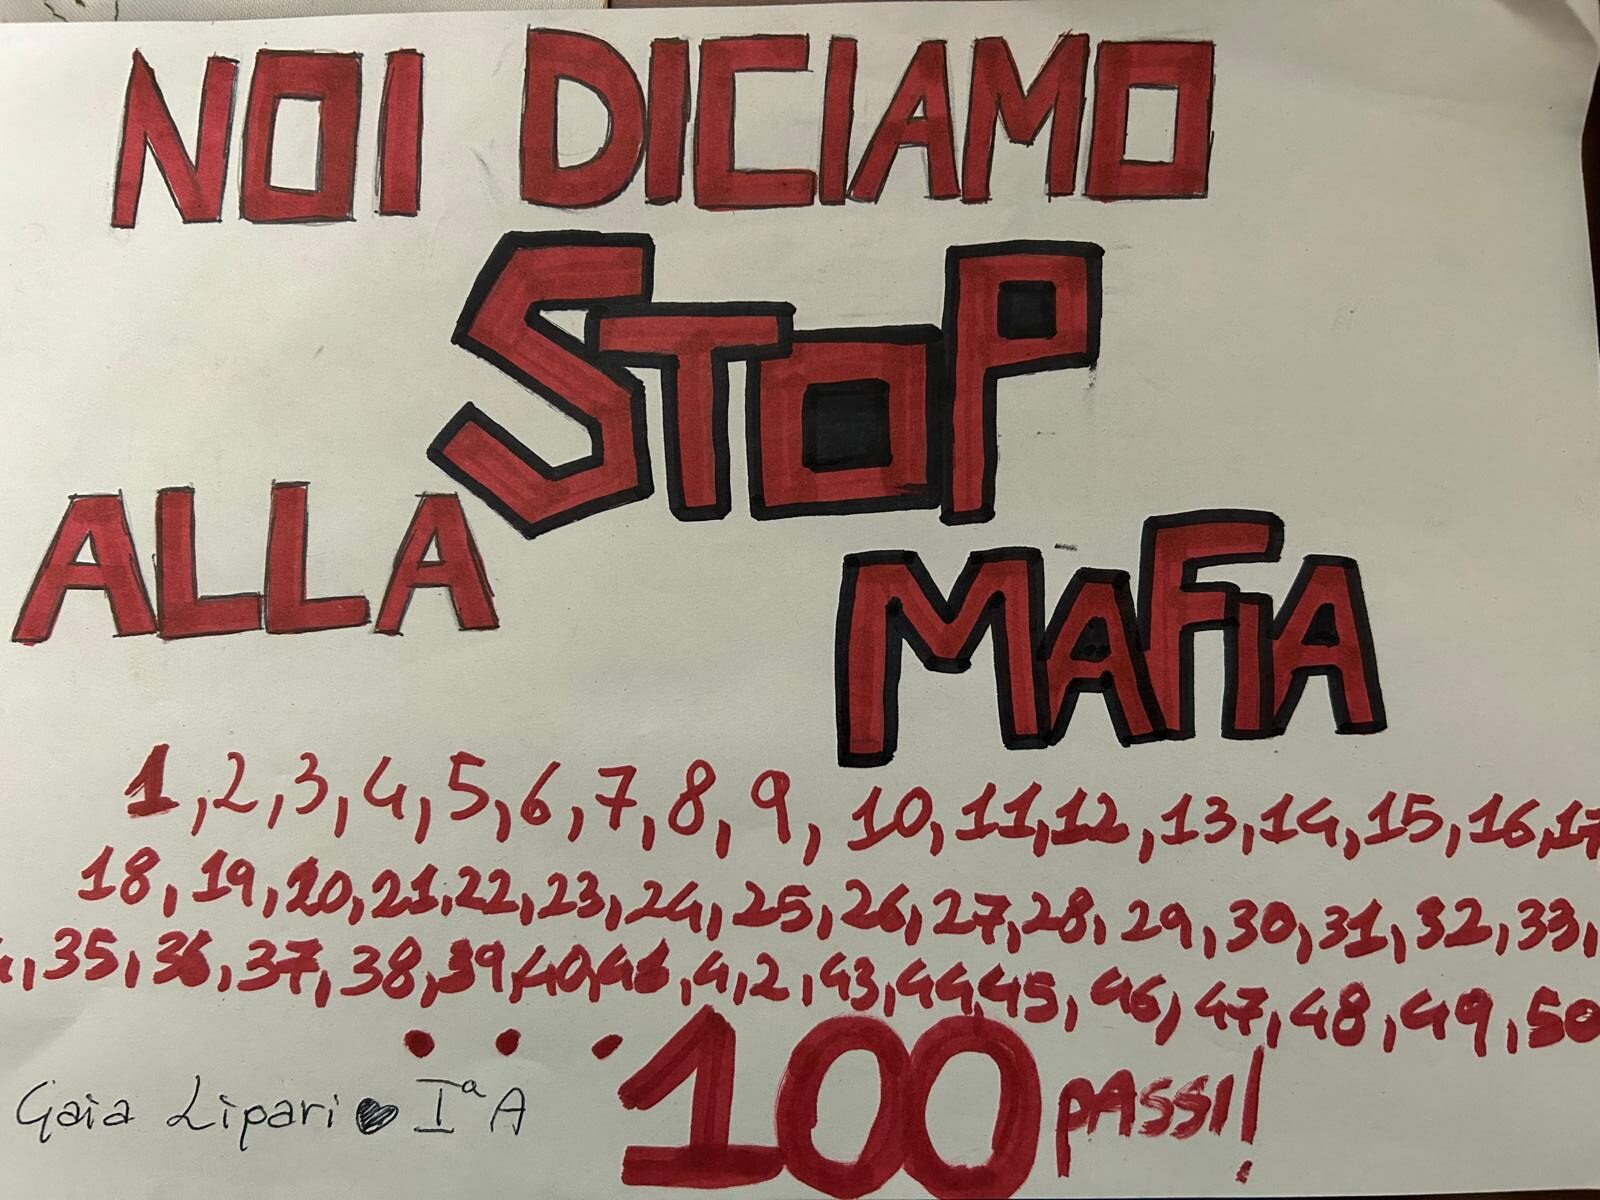 NOI DICIAMO
STOP
ALLA
MAFIA
1, 2, 3, 4, 5, 6, 7, 8, 9, 10, 11, 12, 13, 14, 15, 16, 17
18, 19, 20, 21, 22, 23, 24, 25, 26, 27, 28, 29, 30, 31, 32, 33,
, 35, 36, 37, 38, 39, 40, 41, 4,2, 43, 44, 45, 46, 47, 48, 49, 50
... 100 PASSI!
Gaia Lipari ♥ Iª A